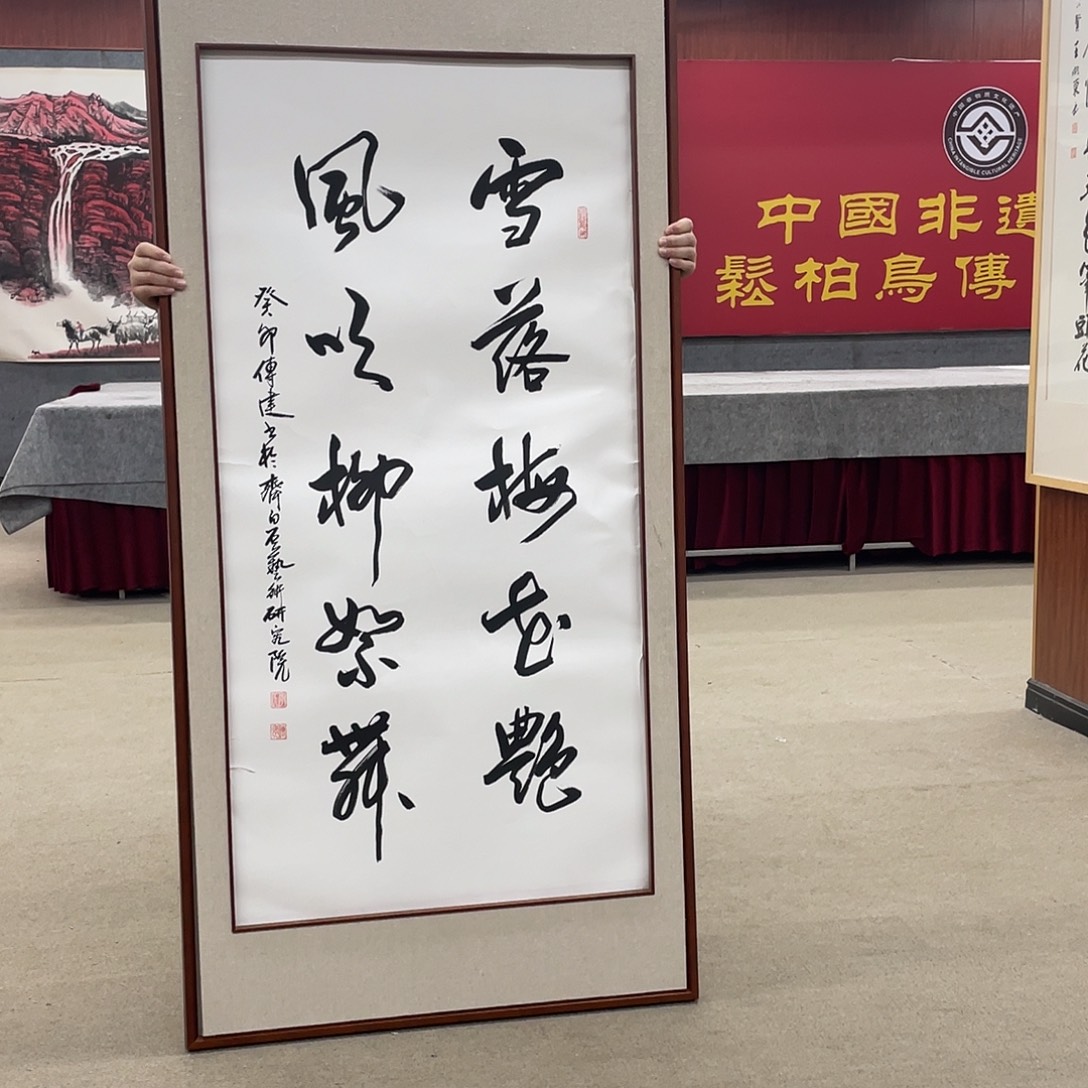 雪落梅花艷
風吹柳絮舞
癸卯傳建书於齊白石藝術研究院
中國非遺
鬆柏鳥傳
CHINA INTANGIBLE CULTURAL HERITAGE